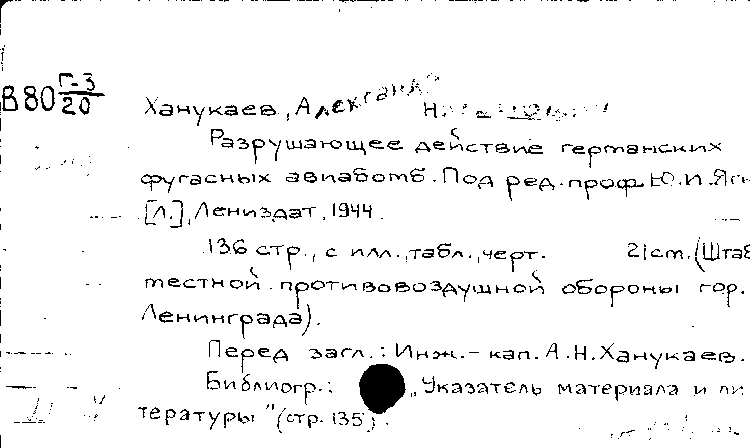 В80 Г-3/20
Ханукаев, Александр
Разрушающее действие германских
фугасных авиабомб. Под ред. проф. Ю.И.
[Л.], Лениздат, 1944.
136 стр., с илл., табл., черт. 21 см. (Штаб
местной противовоздушной обороны гор.
Ленинграда).
Перед загл.: Инж.-кап. А.Н. Ханукаев.
Библиогр.: "Указатель материала и ли
тературы" (стр. 135).